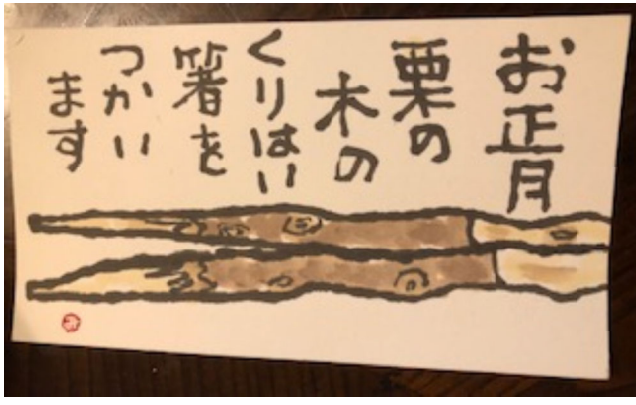 お正月
栗の
木の
くりはい
箸を
つかい
ます